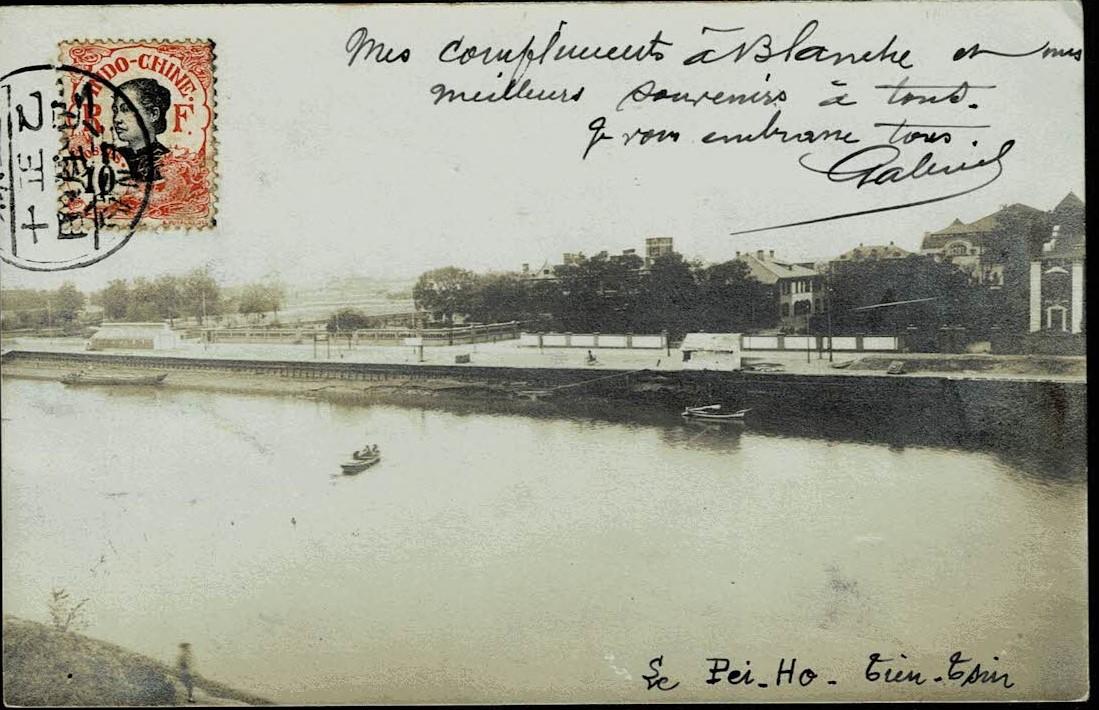 Mes compliments à Blanche et mes
meilleurs souvenirs à tous.
Je vous embrasse tous
Gabriel
INDO-CHINE
R F
10
Le Pei-Ho - Tien-Tsin